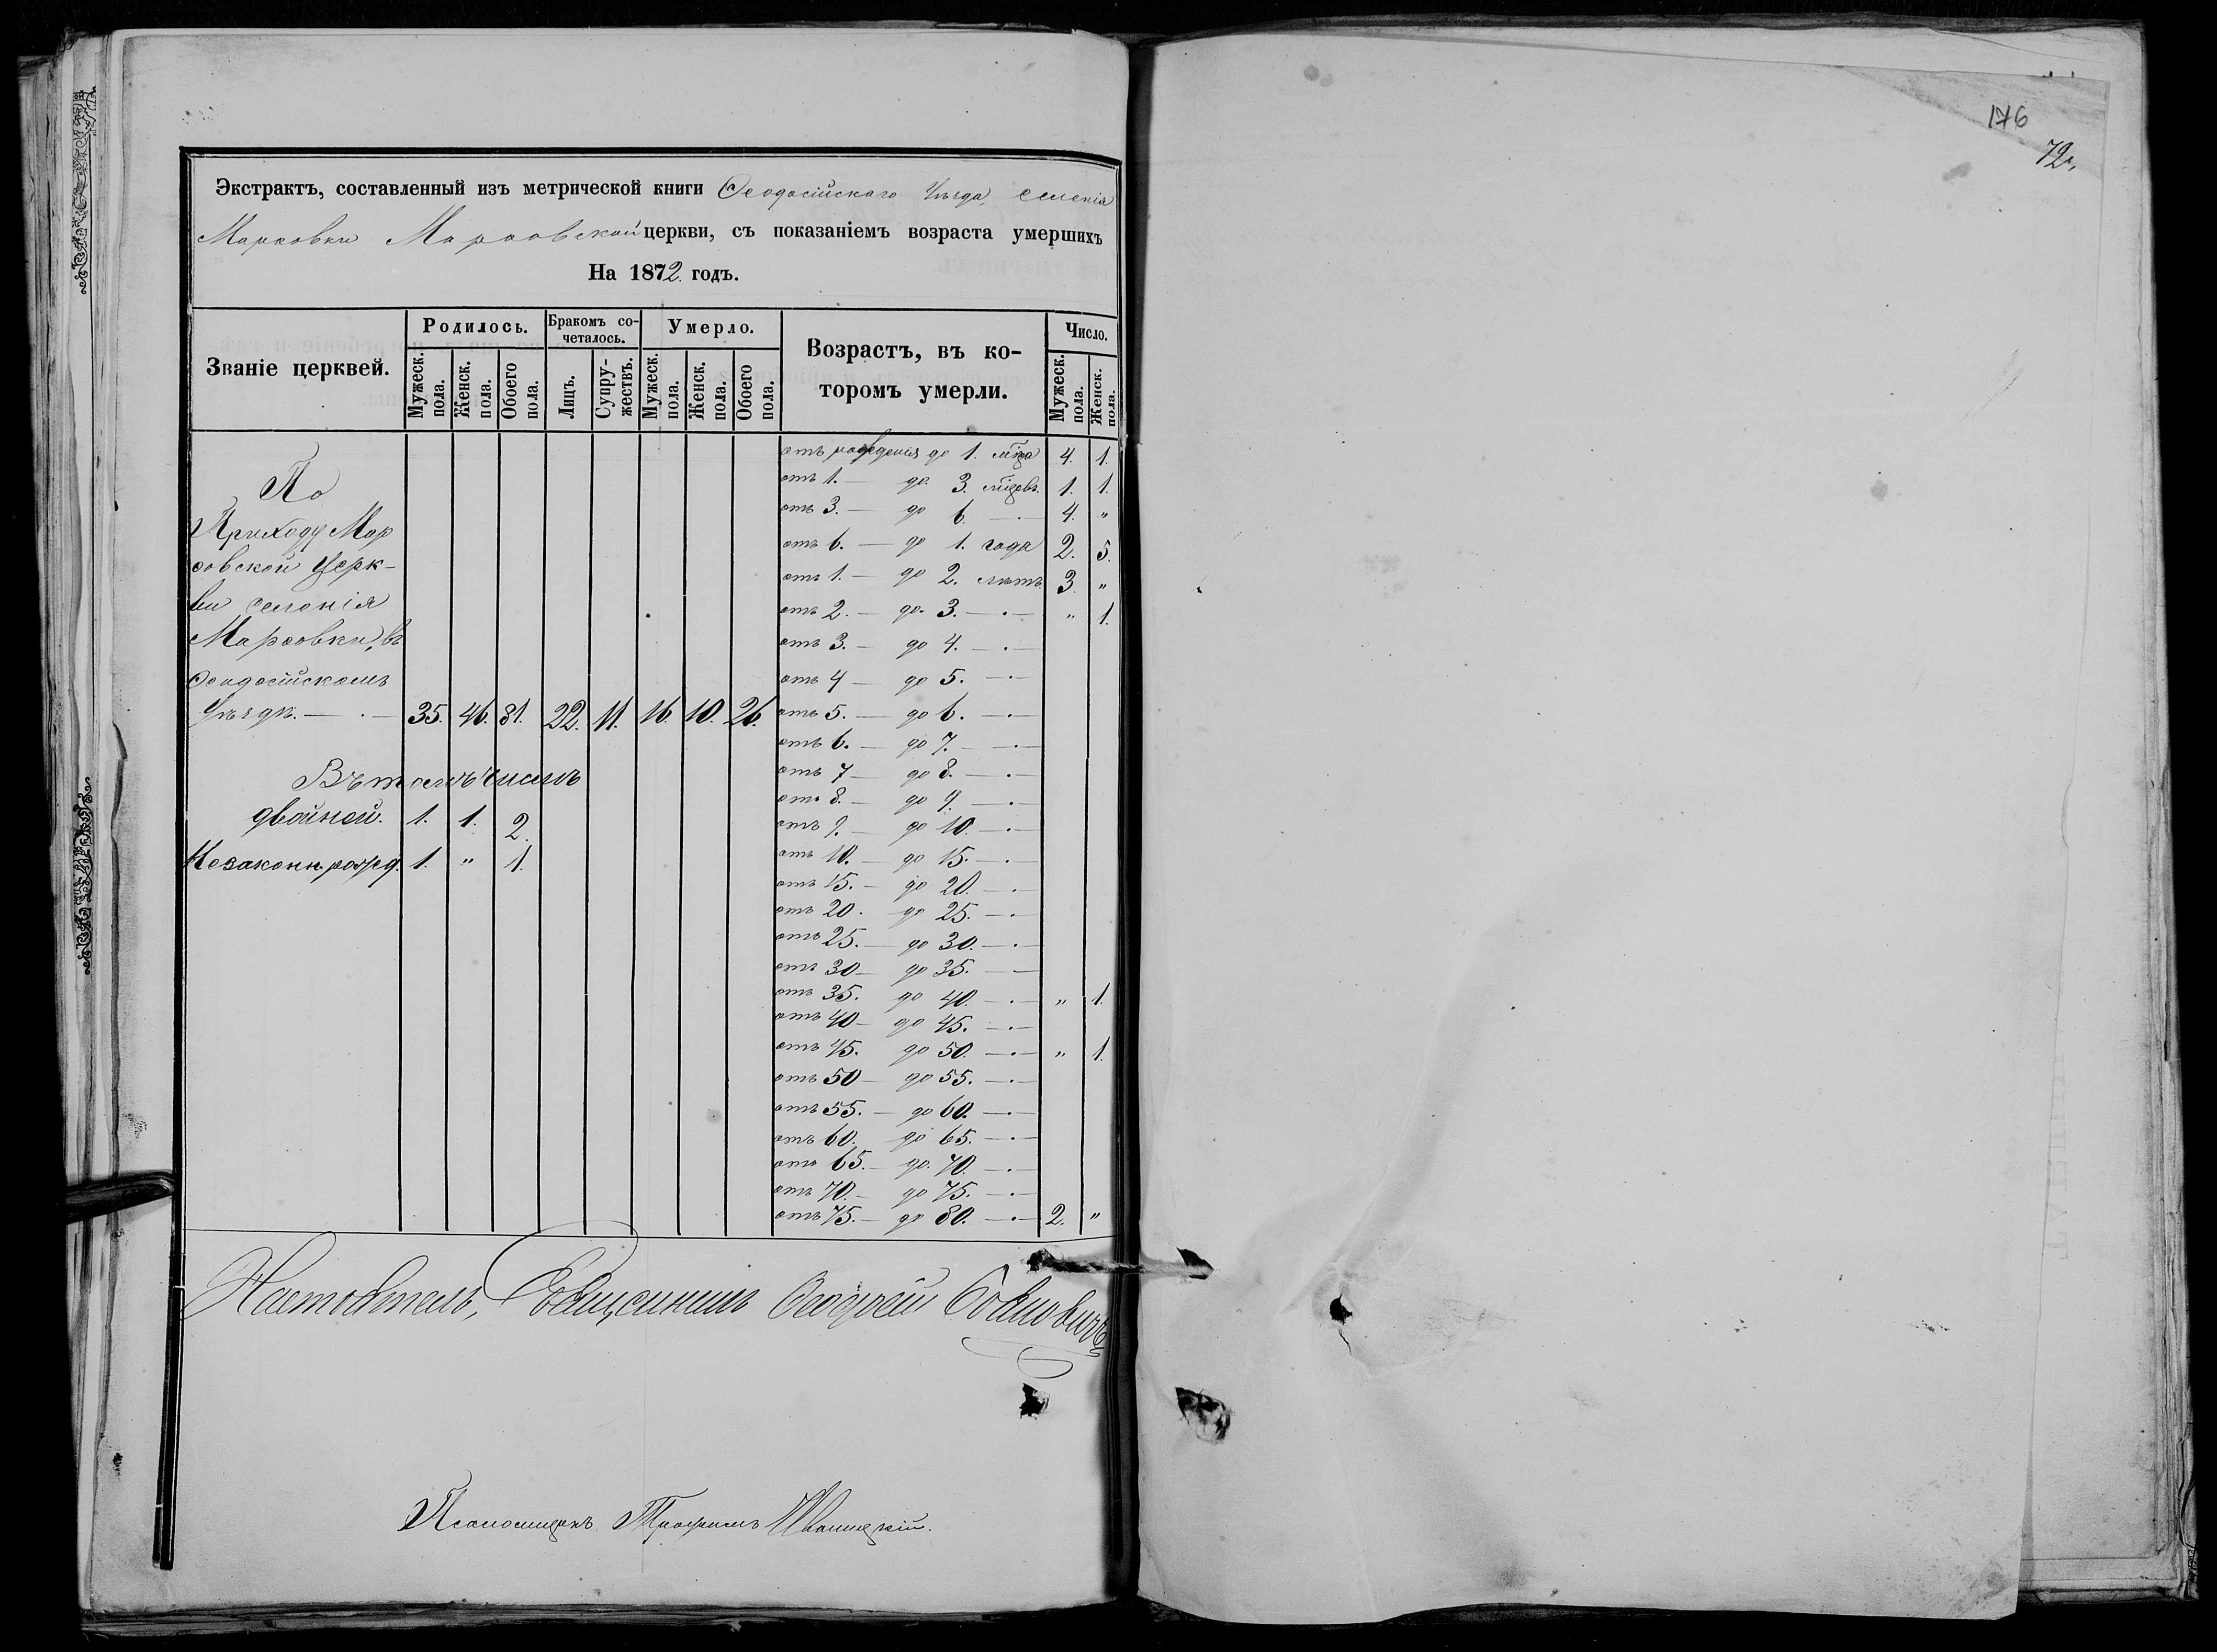 Экстрактъ, составленный изъ метрической книги Ѳеодосійскаго Уѣзда, селенія
Марѳовки Марѳовской церкви, съ показаніемъ возраста умершихъ
На 1872. годъ.
Званіе церквей.
Родилось.
Бракомъ сочеталось.
Умерло.
Возрастъ, въ которомъ умерли.
Число.
Мужеск. пола.
Женск. пола.
Обоего пола.
Лицъ.
Супружествъ.
Мужеск. пола.
Женск. пола.
Обоего пола.
Мужеск. пола.
Женск. пола.
По
Приходу Мар
ѳовской Церк-
ви селенія
Марѳовки, въ
Ѳеодосійскомъ
Уѣздѣ. — . — 35. 46. 81. 22. 11. 16. 10. 26.
Въ томъ числѣ
двойней. 1. 1. 2.
Незаконн. рожд. 1. " 1.
отъ рожденія до 1. мца 4. 1.
отъ 1. — до 3. мцовъ. 1. 1.
отъ 3. — до 6. — 4. "
отъ 6. — до 1. года 2. 5.
отъ 1. — до 2. лѣтъ 3. "
отъ 2. — до 3. — . — " 1.
отъ 3. — до 4. — . —
отъ 4 — до 5. — . —
отъ 5. — до 6. — . —
отъ 6. — до 7. — . —
отъ 7 — до 8. — . —
отъ 8. — до 9. — . —
отъ 9. — до 10. — . —
отъ 10. — до 15. — . —
отъ 15. — до 20. — . —
отъ 20. до 25. — . —
отъ 25. — до 30. — . —
отъ 30 — до 35. — —
отъ 35. до 40. — . — " 1.
отъ 40 — до 45. — . —
отъ 45. до 50. — . — " 1.
отъ 50 — до 55. — . —
отъ 55. — до 60. — . —
отъ 60. до 65. — . —
отъ 65. — до 70. — . —
отъ 70. — до 75. — . —
отъ 75. — до 80. — . — 2. "
Настоятель, Священникъ
Псаломщикъ Трофимъ
176
72.